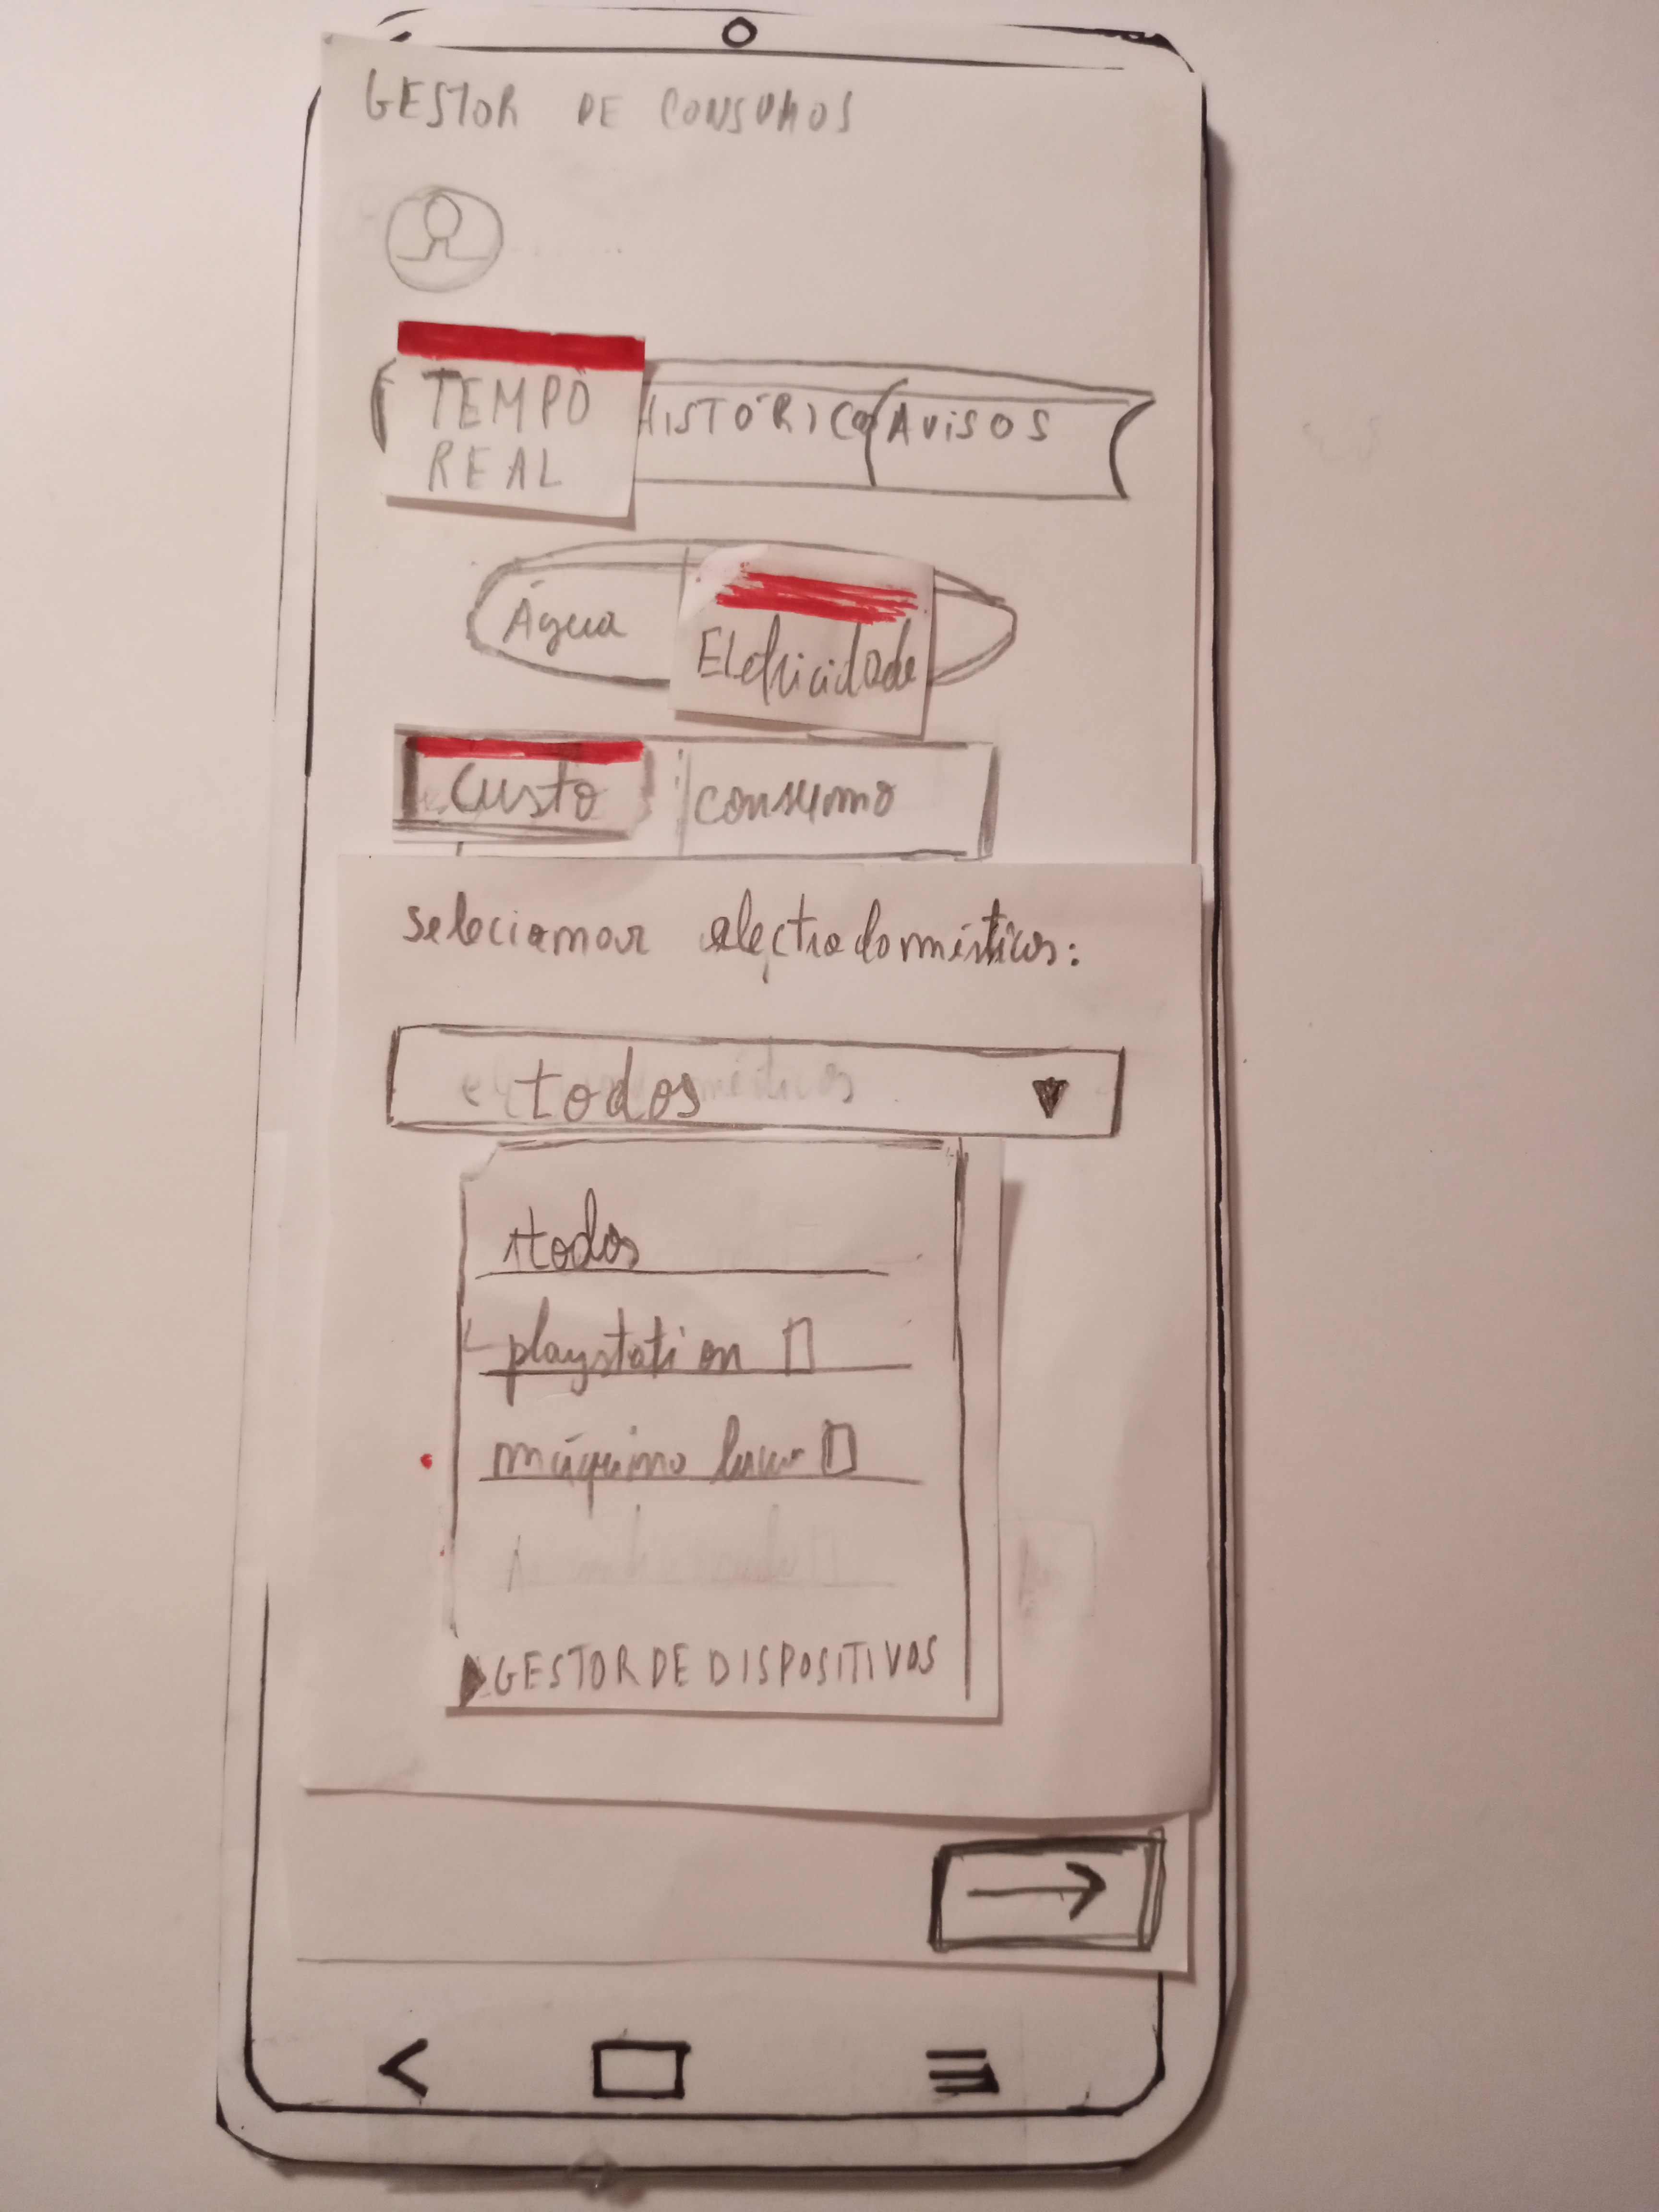 GESTOR DE CONSUMOS
TEMPO REAL
HISTÓRICO
AVISOS
Água
Eletricidade
Custo
consumo
selecionar electrodomésticos:
todos
todos
playstation
máquina lavar
GESTOR DE DISPOSITIVOS